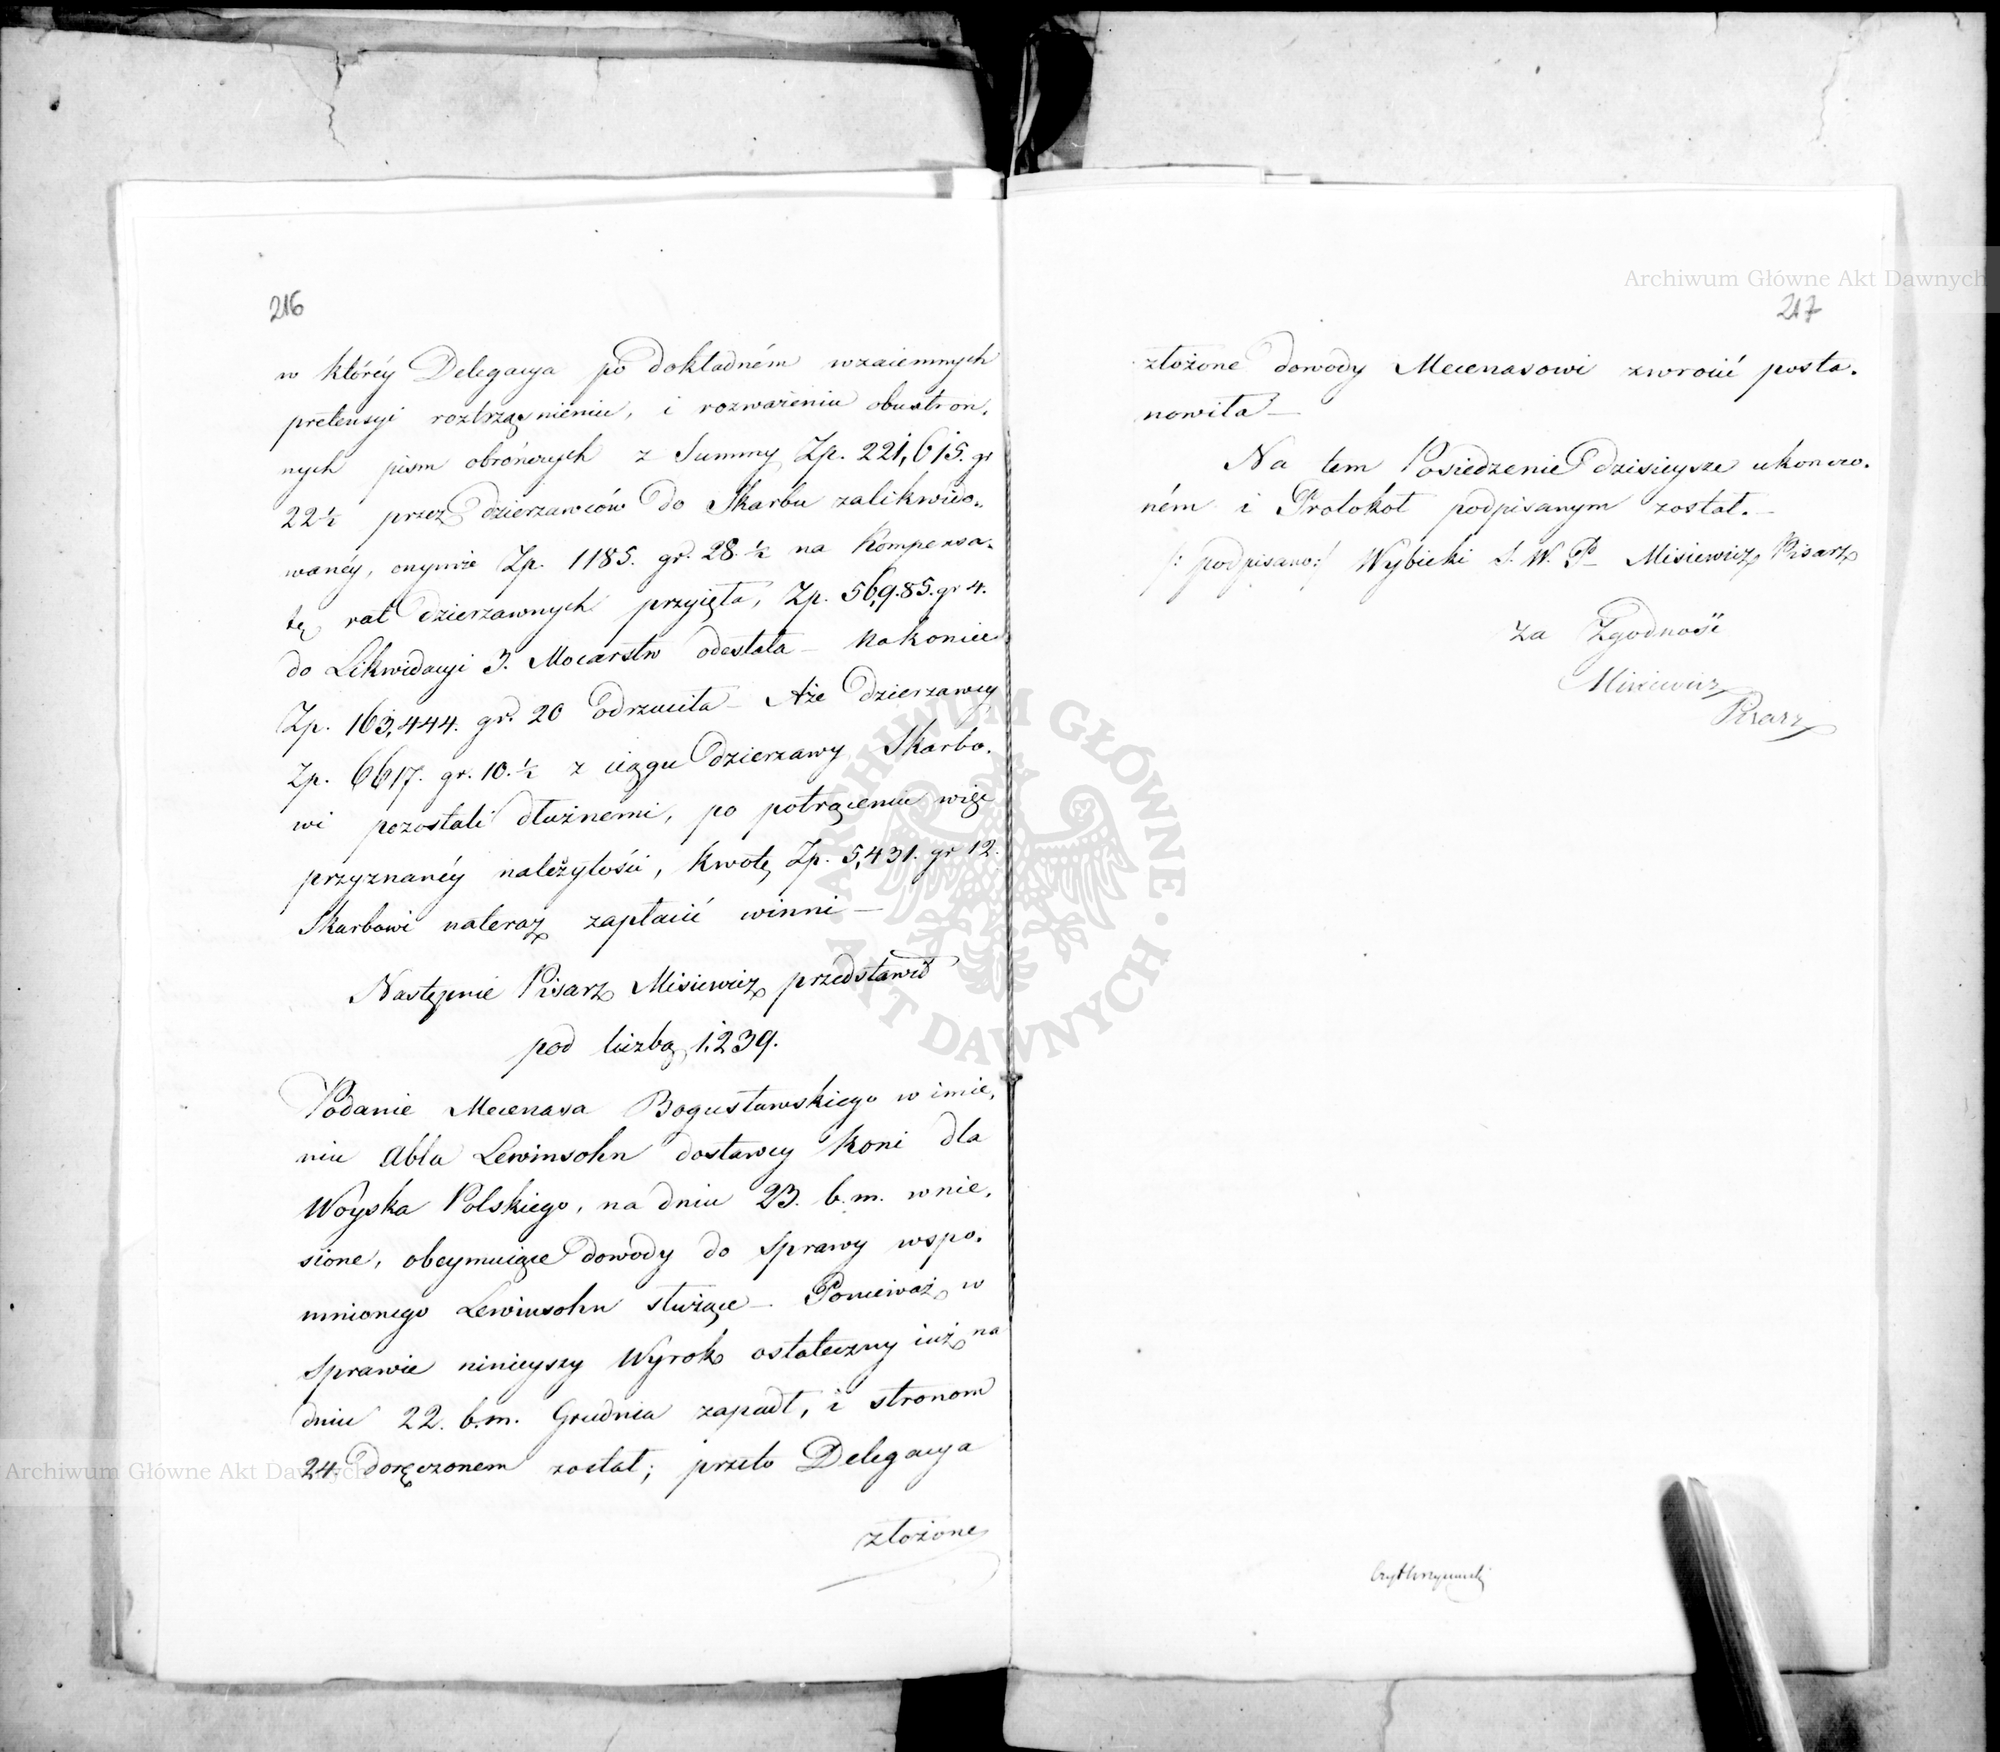 216
w któréy Delegacya po dokładném wzaiemnych
pretensyi roztrząsnieniu, i rozważeniu obustron-
nych pism obrończych z Summy Zp. 221,615. gr
22½ przez dzierzawców do Skarbu zalikwido-
wanéy, onymże Zp. 1185. gr. 28.½ na kompensa-
tę rat dzierzawnych przyięta, Zp. 56,985. gr 4.
do Likwidacyi 3. Mocarstw odesłała – Nakoniec
Zp. 163,444. gr. 20 odrzuciła – Aże dzierzawcy
Zp. 6617. gr. 10.½ z ciągu dzierzawy Skarbo-
wi pozostali dłużnemi, po potrąceniu więc
przyznanéy należytości, kwotę Zp. 5,431. gr 12.
Skarbowi nateraz zapłacić winni –
Następnie Pisarz Misiewicz przedstawił
pod liczbą 1,239.
Podanie Mecenasa Bogusławskiego w imie-
niu Abla Lewinsohn dostawcy koni dla
Woyska Polskiego, na dniu 23. b.m. wnie-
sione, obeymuiące dowody do sprawy wspo-
mnionego Lewinsohn służące – Ponieważ w
sprawie ninieyszy Wyrok ostateczny iuż na
dniu 22. b.m. Grudnia zapadł, i stronom
24. doręczonem został; przeto Delegacya
złożone
217
złożone dowody Mecenasowi zwrócić posta-
nowiła –
Na tem Posiedzenie dzisieysze ukończo-
ném i Protokół podpisanym został. –
/: podpisano:/ Wybicki S. W. P – Misiewicz Pisarz
Za Zgodność
Misiewicz
Pisarz
Archiwum Główne Akt Dawnych
Archiwum Główne Akt Dawnych
· ARCHIWUM GŁÓWNE · AKT DAWNYCH